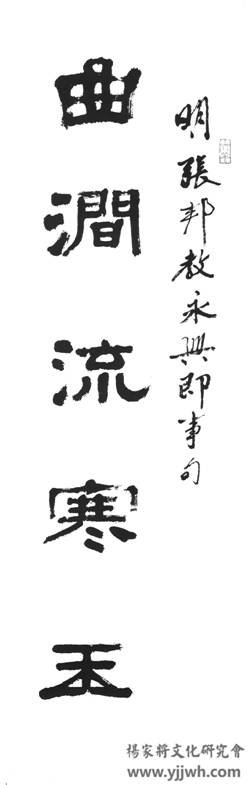 明張邦教永興即事句
曲澗流寒玉
楊家將文化研究會
www.yjjwh.com